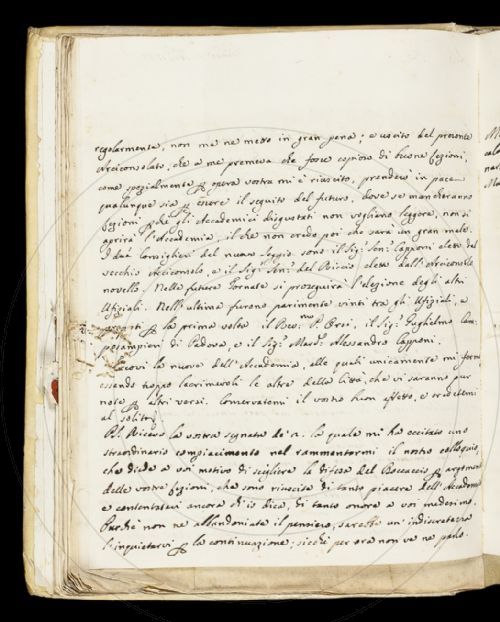 regolarmente, non me ne metto in gran pena; e uscito del presente
Arciconsolato, che a me premeva che fosse copioso di buone lezioni,
come spezialmente p opera vostra mi è riuscito, prenderò in pace
qualunque sia p essere il seguito del futuro, dove se mancheranno
lezioni pchè gli Accademici disgustati non vogliano leggere, non si
aprirà l'Accademia, il che non credo poi che sarà un gran male.
I due Consiglieri del nuovo seggio sono il Sig. Sen. Capponi eletto dal
vecchio Arciconsolo, e il Sig. Sen. del Riccio eletto dall'Arciconsolo
novello. Nella futura Tornata si proseguirà l'elezione degli altri
Ufiziali. Nell'ultima furono parimente vinti tra gli Ufiziali, e
p la prima volta il Rev.mo P. Orsi, il Sig. Guglielmo Cam-
posampieri di Padova, e il Sig. March. Alessandro Capponi.
Eccovi le nuove dell'Accademia, alle quali unicamente mi fermo
essendo troppo lacrimevoli le altre della Città, che vi saranno pur
note p altri versi. Conservatemi il vostro buon affetto, e credetemi
al solito
P.S. Ricevo la vostra segnata de' 2. la quale mi ha eccitato uno
straordinario compiacimento nel rammentarmi il nostro colloquio,
che diede a voi motivo di scegliere la difesa del Boccaccio p argomento
delle vostre lezioni, che sono riuscite di tanto piacere dell'Accademia
e contentatevi ancora ch'io dica, di tanto onore a voi medesimo.
Purchè non ne abbandoniate il pensiero, sarebbe un'indiscretezza
l'inquietarvi p la continuazione; sicchè per ora non ve ne parlo.